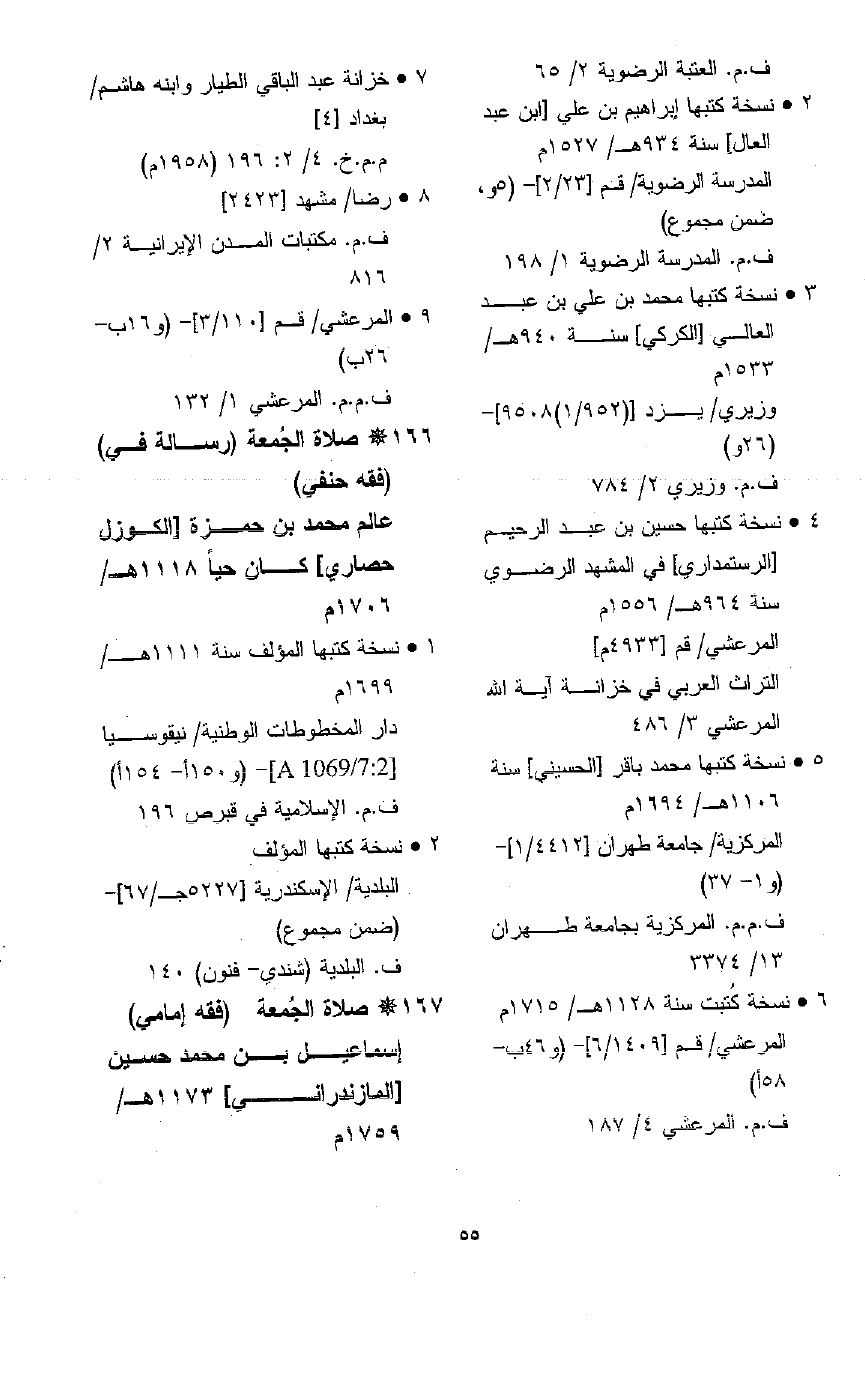 ف.م. العتبة الرضوية ٢/ ٦٥
٢ • نسخة كتبها إبراهيم بن علي [ابن عبد
العال] سنة ٩٣٤هـ/ ١٥٢٧م
المدرسة الرضوية/ قم [٢/٢٣]- (٥و،
ضمن مجموع)
ف.م. المدرسة الرضوية ١/ ١٩٨
٣ • نسخة كتبها محمد بن علي بن عبد
العالي [الكركي] سنة ٩٤٠هـ/
١٥٣٣م
وزيري/ يزد [(١/٩٥٢)٩٥٠٨]-
(٢٦و)
ف.م. وزيري ٢/ ٧٨٤
٤ • نسخة كتبها حسين بن عبد الرحيم
[الرستمداري] في المشهد الرضوي
سنة ٩٦٤هـ/ ١٥٥٦م
المرعشي/ قم [٤٩٣٣م]
التراث العربي في خزانة آية الله
المرعشي ٣/ ٤٨٦
٥ • نسخة كتبها محمد باقر [الحسيني] سنة
١١٠٦هـ/ ١٦٩٤م
المركزية/ جامعة طهران [١/٤٤١٢]-
(و١- ٣٧)
ف.م.م. المركزية بجامعة طهران
١٣/ ٣٣٧٤
٦ • نسخة كُتبت سنة ١١٢٨هـ/ ١٧١٥م
المرعشي/ قم [٦/١٤٠٩]- (و٤٦ب-
٥٨أ)
ف.م. المرعشي ٤/ ١٨٧
٧ • خزانة عبد الباقي الطيار وابنه هاشم/
بغداد [٤]
م.م.خ. ٤/ ٢: ١٩٦ (١٩٥٨م)
٨ • رضا/ مشهد [٢٤٢٣]
ف.م. مكتبات المدن الإيرانية ٢/
٨١٦
٩ • المرعشي/ قم [٣/١١٠]- (و١٦ب-
٢٦ب)
ف.م.م. المرعشي ١/ ١٣٢
١٦٦ * صلاة الجُمعة (رسالة في)
(فقه حنفي)
عالم محمد بن حمزة [الكوزل
حصاري] كان حياً ١١١٨هـ/
١٧٠٦م
١ • نسخة كتبها المؤلف سنة ١١١١هـ/
١٦٩٩م
دار المخطوطات الوطنية/ نيقوسيا
[A 1069/7:2]- (و١٥٠أ- ١٥٤أ)
ف.م. الإسلامية في قبرص ١٩٦
٢ • نسخة كتبها المؤلف
البلدية/ الإسكندرية [٥٢٢٧جـ/٦٧]-
(ضمن مجموع)
ف. البلدية (شندي- فنون) ١٤٠
١٦٧ * صلاة الجُمعة (فقه إمامي)
إسماعيل بن محمد حسين
[المازندراني] ١١٧٣هـ/
١٧٥٩م
٥٥